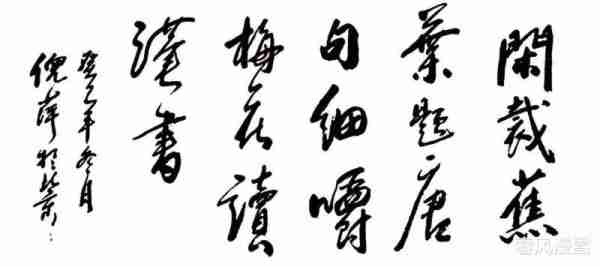 閑裁蕉
葉題唐
句細嚼
梅花讀
漢書
癸巳年冬月
倪萍於北京